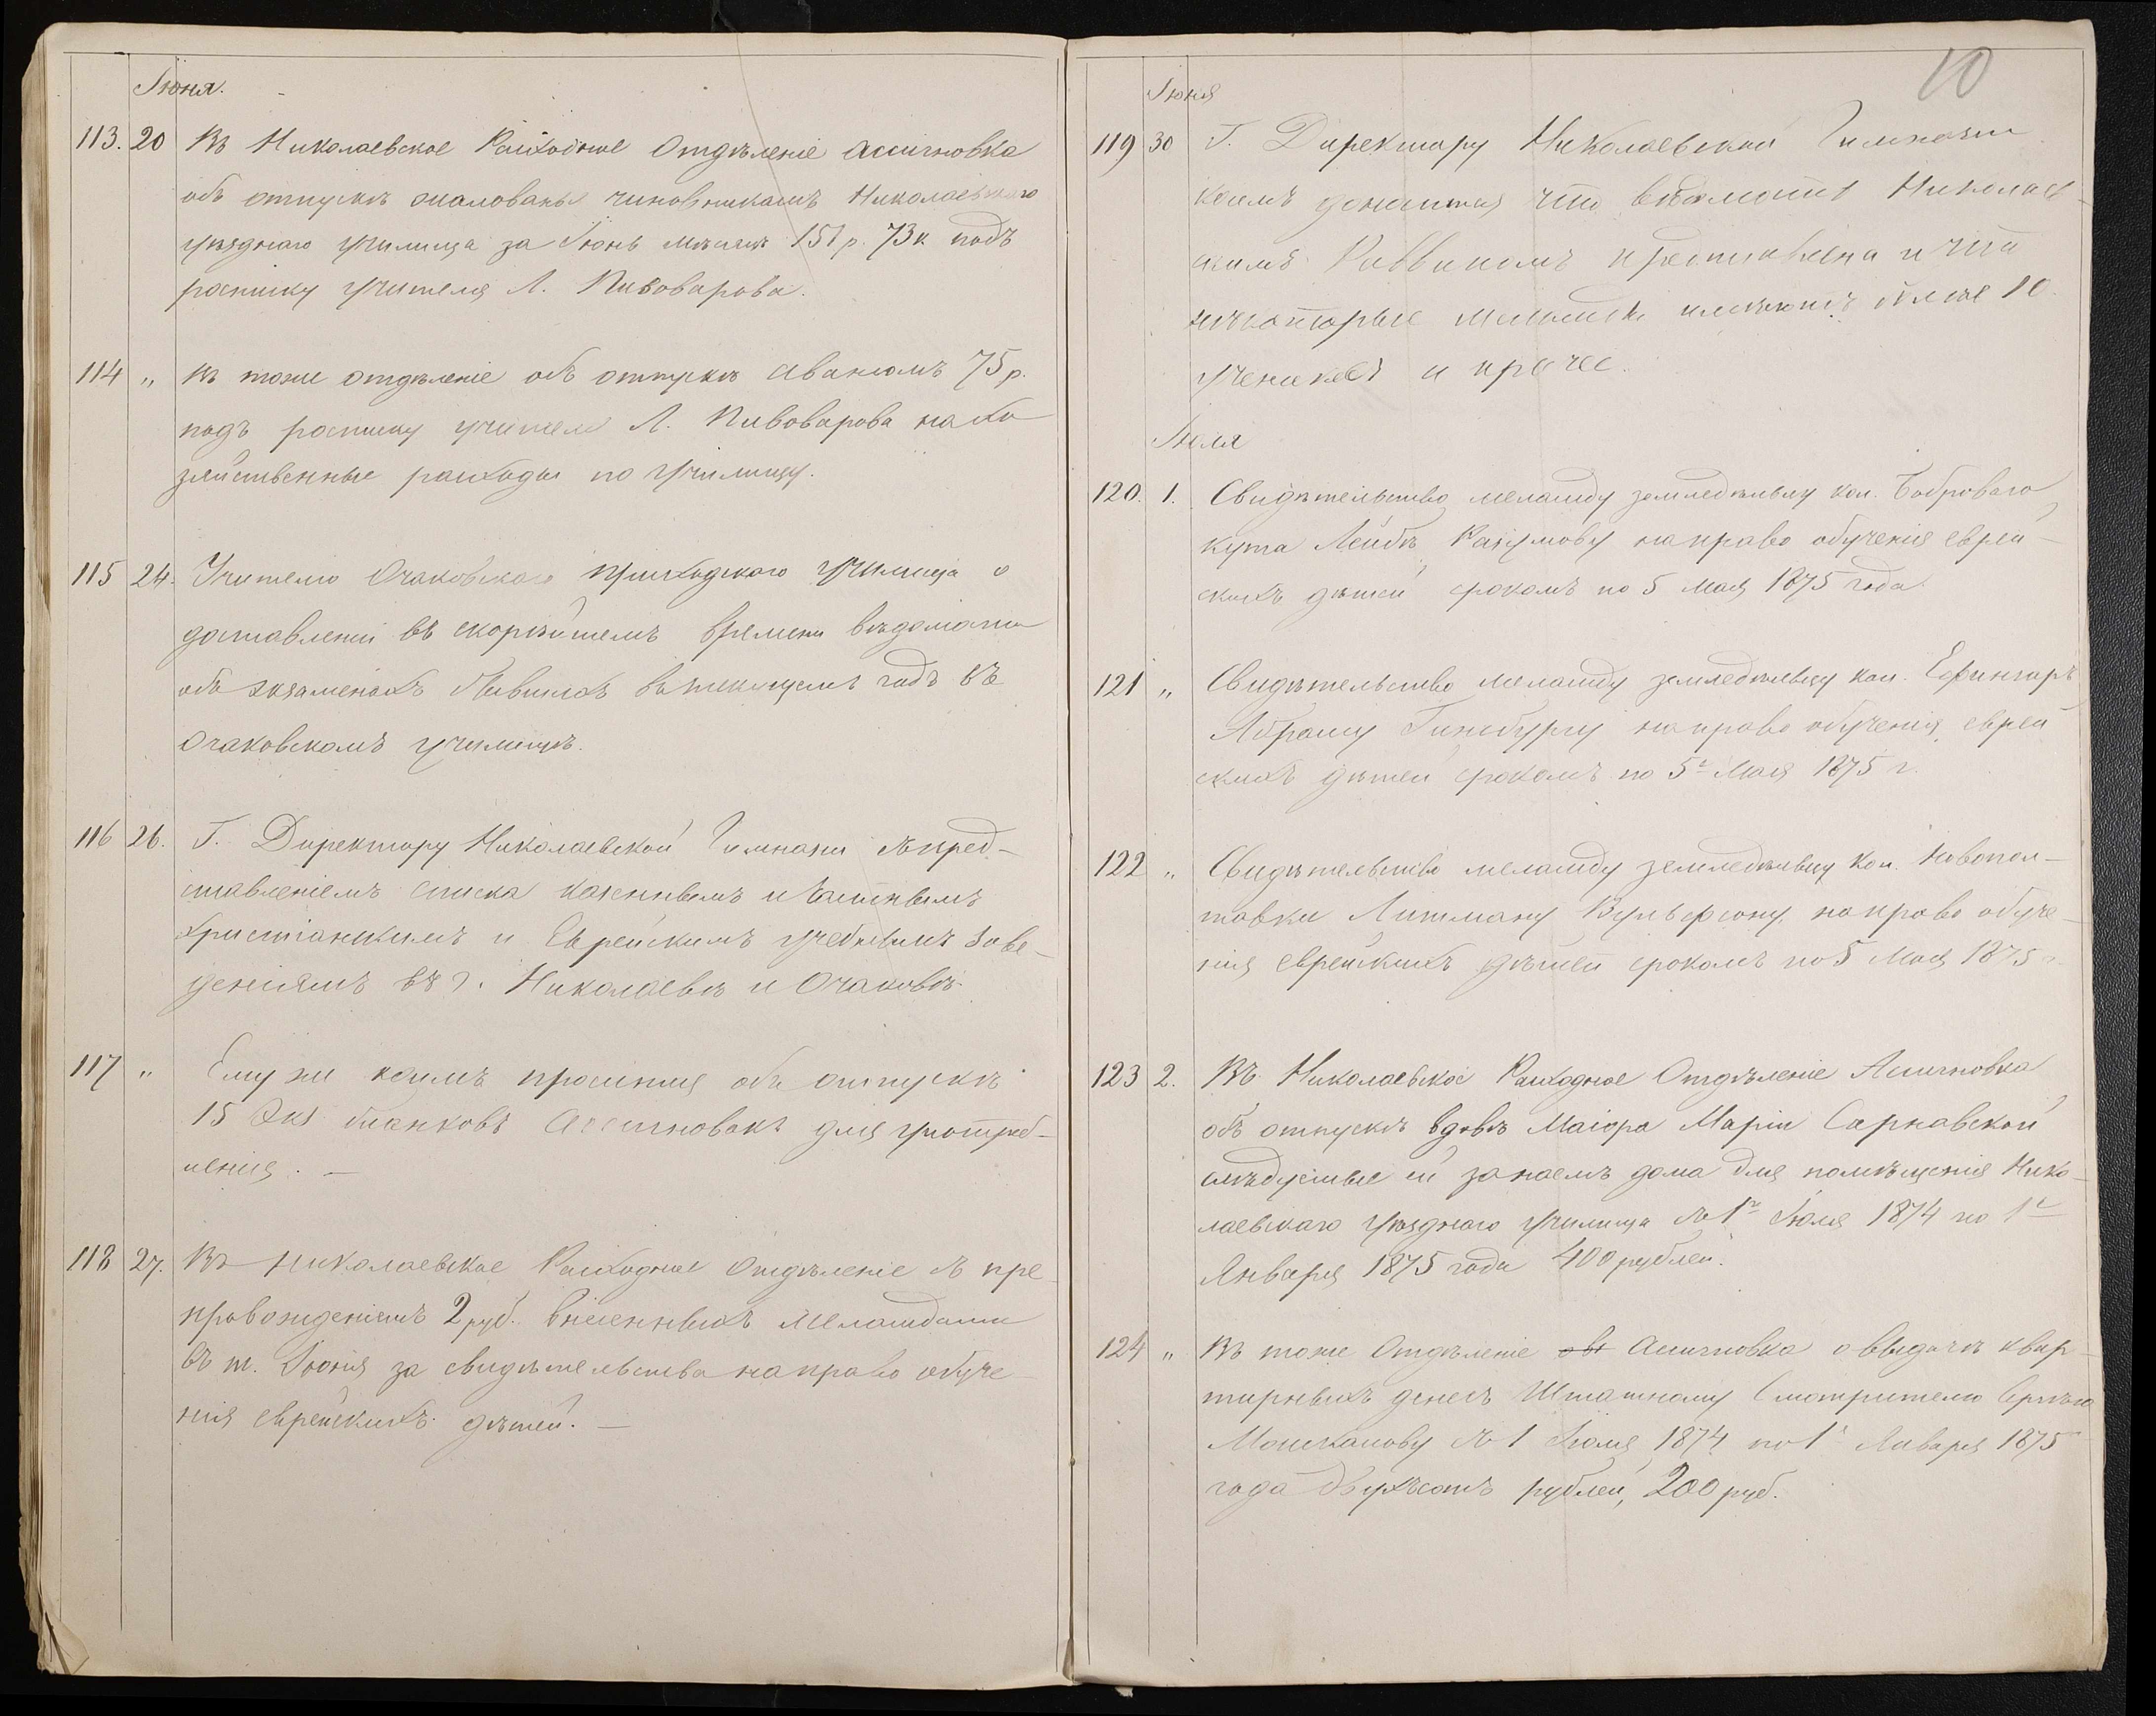 Іюня.
113. 20 Въ Николаевское Расходное Отдѣленіе ассигновка
объ отпускѣ жалованья чиновникамъ Николаевскаго
уѣзднаго училища за Іюнь мѣсяцъ 151 р. 73 к подъ
росписку учителя Л. Пивоварова.
114 „ въ тоже отдѣленіе объ отпускѣ авансомъ 75 р.
подъ росписку учителя Л. Пивоварова на хо
зяйственные расходы по училищу.
115 24. Учителю Очаковскаго приходскаго училища о
доставленіи въ скорѣйшемъ времени вѣдомости
объ экзаменахъ бывшихъ въ текущемъ годѣ въ
Очаковскомъ училищѣ.
116 26. Г. Директору Николаевской Гимназіи съ пред-
ставленіемъ списка казеннымъ и частнымъ
христіанскимъ и Еврейскимъ учебнымъ заве-
деніямъ въ г. Николаевѣ и Очаковѣ.
117 „ Ему же коимъ просится объ отпускѣ
15 Экз бланковъ ассигновокъ для употреб-
ленія. —
118 27. Въ Николаевское Расходное Отдѣленіе съ пре
провожденіемъ 2 руб. внесенныхъ меламдами
въ т. Іюнѣ за свидѣтельства на право обуче-
нія еврейскихъ дѣтей. —
10
Іюня
119 30 Г. Директору Николаевской Гимназіи
коимъ доносится что вѣдомость Николаев-
скимъ Раввиномъ представлена и что
нѣкоторые меламды имѣютъ болѣе 10
учениковъ и прочее.
Іюля
120. 1. Свидѣтельство меламду земледѣльцу кол. Боброваго
кута Лейбѣ Разумову на право обученія еврей-
скихъ дѣтей срокомъ по 5 мая 1875 года.
121 „ Свидѣтельство меламду земледѣльцу кол. Ефингаръ
Абраму Гинсбургу на право обученія еврей
скихъ дѣтей срокомъ по 5е Мая 1875 г.
122 „ Свидѣтельство меламду земледѣльцу кол. Новопол-
тавки Липману Вульфсону, на право обуче-
нія еврейскихъ дѣтей срокомъ по 5 Мая 1875 г.
123 2. Въ Николаевское Расходное Отдѣленіе Ассигновка
объ отпускѣ вдовѣ Маіора Маріи Сарнавской
слѣдуемые ей за наемъ дома для помѣщенія Нико-
лаевскаго уѣзднаго училища съ 1го Іюля 1874 по 1е
Января 1875 года 400 рублей.
124 „ Въ тоже Отдѣленіе объ ассигновка о выдачѣ квар-
тирныхъ денегъ Штатному Смотрителю Сергѣю
съ 1 Іюля 1874 по 1е Января 1875
года двухсотъ рублей, 200 руб.